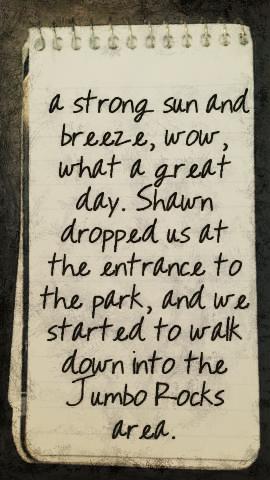 a strong sun and
breeze, wow,
what a great
day. Shawn
dropped us at
the entrance to
the park, and we
started to walk
down into the
Jumbo Rocks
area.